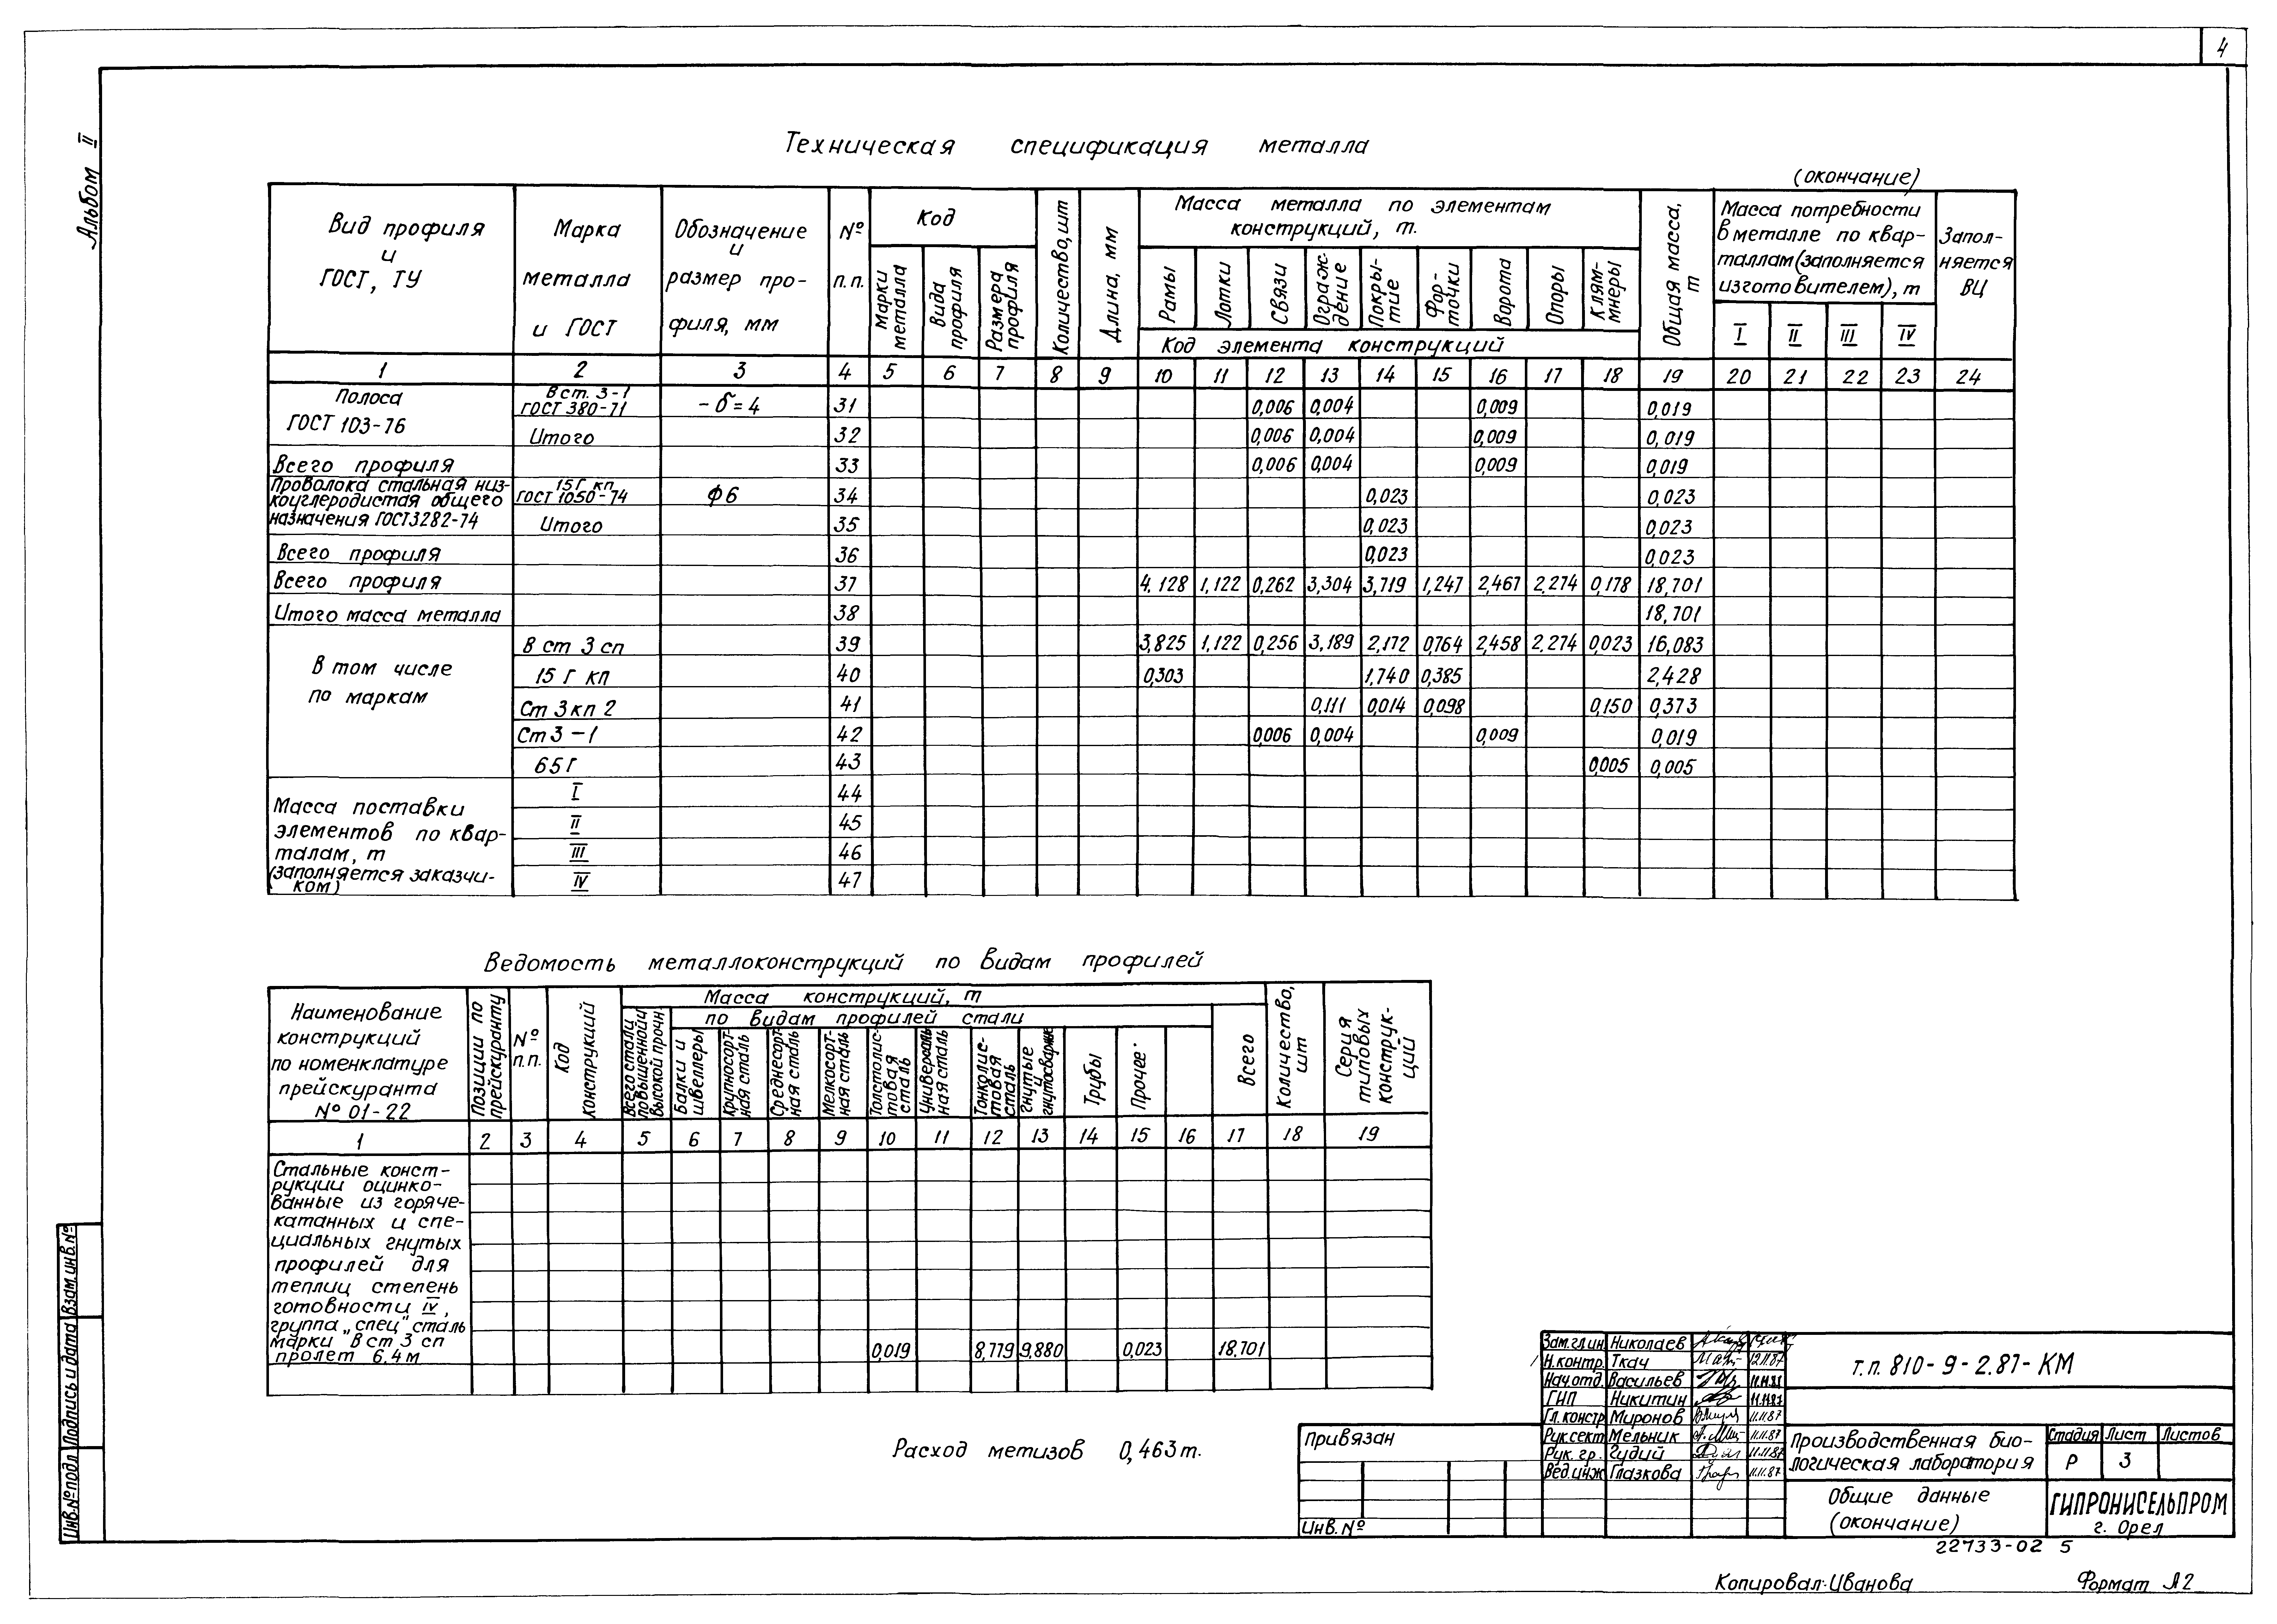 4
Альбом II
Техническая спецификация металла
(окончание)
Вид профиля и ГОСТ, ТУ
Марка металла и ГОСТ
Обозначение и размер про-филя, мм
№ п.п.
Код
Марки металла
Вида профиля
Размера профиля
Количество, шт
Длина, мм
Масса металла по элементам конструкций, т.
Рамы
Лотки
Связи
Ограж-дение
Покры-тие
Фор-точки
Ворота
Опоры
Клям-мнеры
Код элемента конструкций
Общая масса, т
Масса потребности в металле по квар-таллам (заполняется изготовителем), т
I II III IV
Запол-няется ВЦ
1 2 3 4 5 6 7 8 9 10 11 12 13 14 15 16 17 18 19 20 21 22 23 24
Полоса ГОСТ 103-76
В ст. 3-1 ГОСТ 380-71 - δ = 4 31 0,006 0,004 0,009 0,019
Итого 32 0,006 0,004 0,009 0,019
Всего профиля 33 0,006 0,004 0,009 0,019
Проволока стальная низ-коуглеродистая общего назначения ГОСТ3282-74
15Г кп ГОСТ 1050-74 ф6 34 0,023 0,023
Итого 35 0,023 0,023
Всего профиля 36 0,023 0,023
Всего профиля 37 4.128 1,122 0,262 3,304 3,719 1,247 2,467 2.274 0,178 18,701
Итого масса металла 38 18,701
В том числе по маркам
В ст 3 сп 39 3,825 1,122 0,256 3,189 2,172 0,764 2,458 2.274 0,023 16,083
15 Г кп 40 0,303 1,740 0,385 2,428
Ст 3 кп 2 41 0,111 0,014 0,098 0,150 0,373
Ст 3 - 1 42 0,006 0,004 0,009 0,019
65 Г 43 0,005 0,005
Масса поставки элементов по квар-талам, т (заполняется заказчи-ком)
I 44
II 45
III 46
IV 47
Ведомость металлоконструкций по видам профилей
Наименование конструкций по номенклатуре прейскуранта № 01-22
Позиции по прейскуранту
№ п.п.
Код конструкций
Масса конструкций, т
по видам профилей стали
Всего стали повышенной и высокой прочн.
Балки и швеллеры
Крупносорт-ная сталь
Среднесорт-ная сталь
Мелкосорт-ная сталь
Толстолис-товая сталь
Универсаль-ная сталь
Тонколис-товая сталь
Гнутые и гнутосварные
Трубы
Прочее
Всего
Количество, шт
Серия типовых конструк-ций
1 2 3 4 5 6 7 8 9 10 11 12 13 14 15 16 17 18 19
Стальные конст-
рукции оцинко-
ванные из горяче-
катанных и спе-
циальных гнутых
профилей для
теплиц степень
готовности IV,
группа „спец" сталь
марки В ст 3 сп
пролет 6.4 м 0,019 8,779 9,880 0,023 18.701
Расход метизов 0,463 т.
Привязан
Инв. №
Зам.гл.ин. Николаев
Н.контр. Ткач 12.11.87
Нач.отд. Васильев 11.11.87
ГИП Никитин 11.11.87
Гл.констр Миронов 11.11.87
Рук.сект Мельник 11.11.87
Рук. гр. Гудий 11.11.87
Вед.инж Глазкова 11.11.87
т.п. 810-9-2.87-КМ
Производственная био-
логическая лаборатория
Стадия Лист Листов
Р 3
Общие данные
(окончание)
ГИПРОНИСЕЛЬПРОМ
г. Орел
22733-02 5
Копировал: Иванова
Формат А2
Инв.№подл Подпись и дата Взам.инв.№